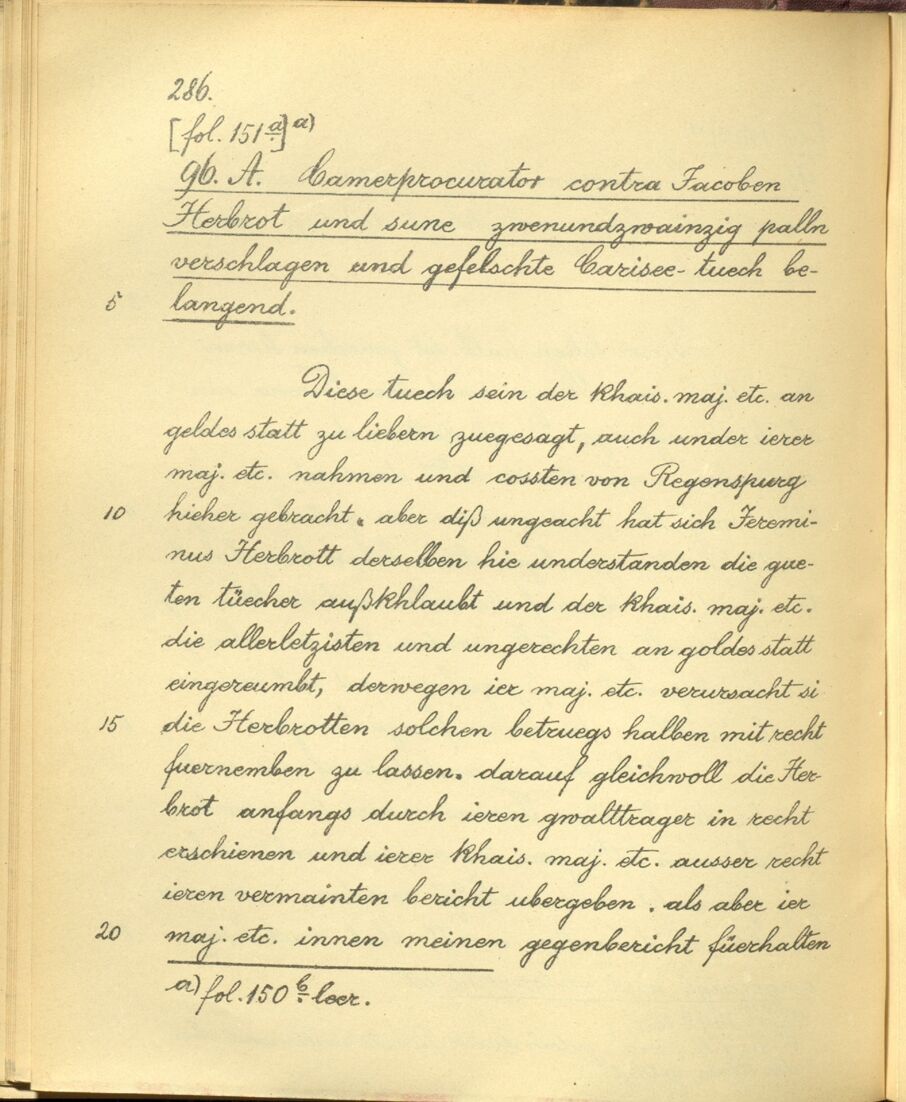 286.
[fol. 151a] a)
96. A. Camerprocurator contra Jacoben
Herbrot und sune zwenundzwainzig palln
verschlagen und gefelschte Carisee-tuech be-
5 langend.
Diese tuech sein der khais. maj. etc. an
geldes statt zu liebern zuegesagt, auch under ierer
maj. etc. nahmen und cossten von Regenspurg
10 hieher gebracht. aber diß ungeacht hat sich Jeremi-
nus Herbrott derselben hie understanden die gue-
ten tüecher außkhlaubt und der khais. maj. etc.
die allerletzisten und ungerechten an goldes statt
eingereumbt, derwegen ier maj. etc. verursacht si
15 die Herbrotten solchen betruegs halben mit recht
fuernemben zu lassen. darauf gleichwoll die Her-
brot anfangs durch ieren gwalttrager in recht
erschienen und ierer khais. maj. etc. ausser recht
ieren vermainten bericht ubergeben. als aber ier
20 maj. etc. innen meinen gegenbericht füerhalten
a) fol. 150 b leer.